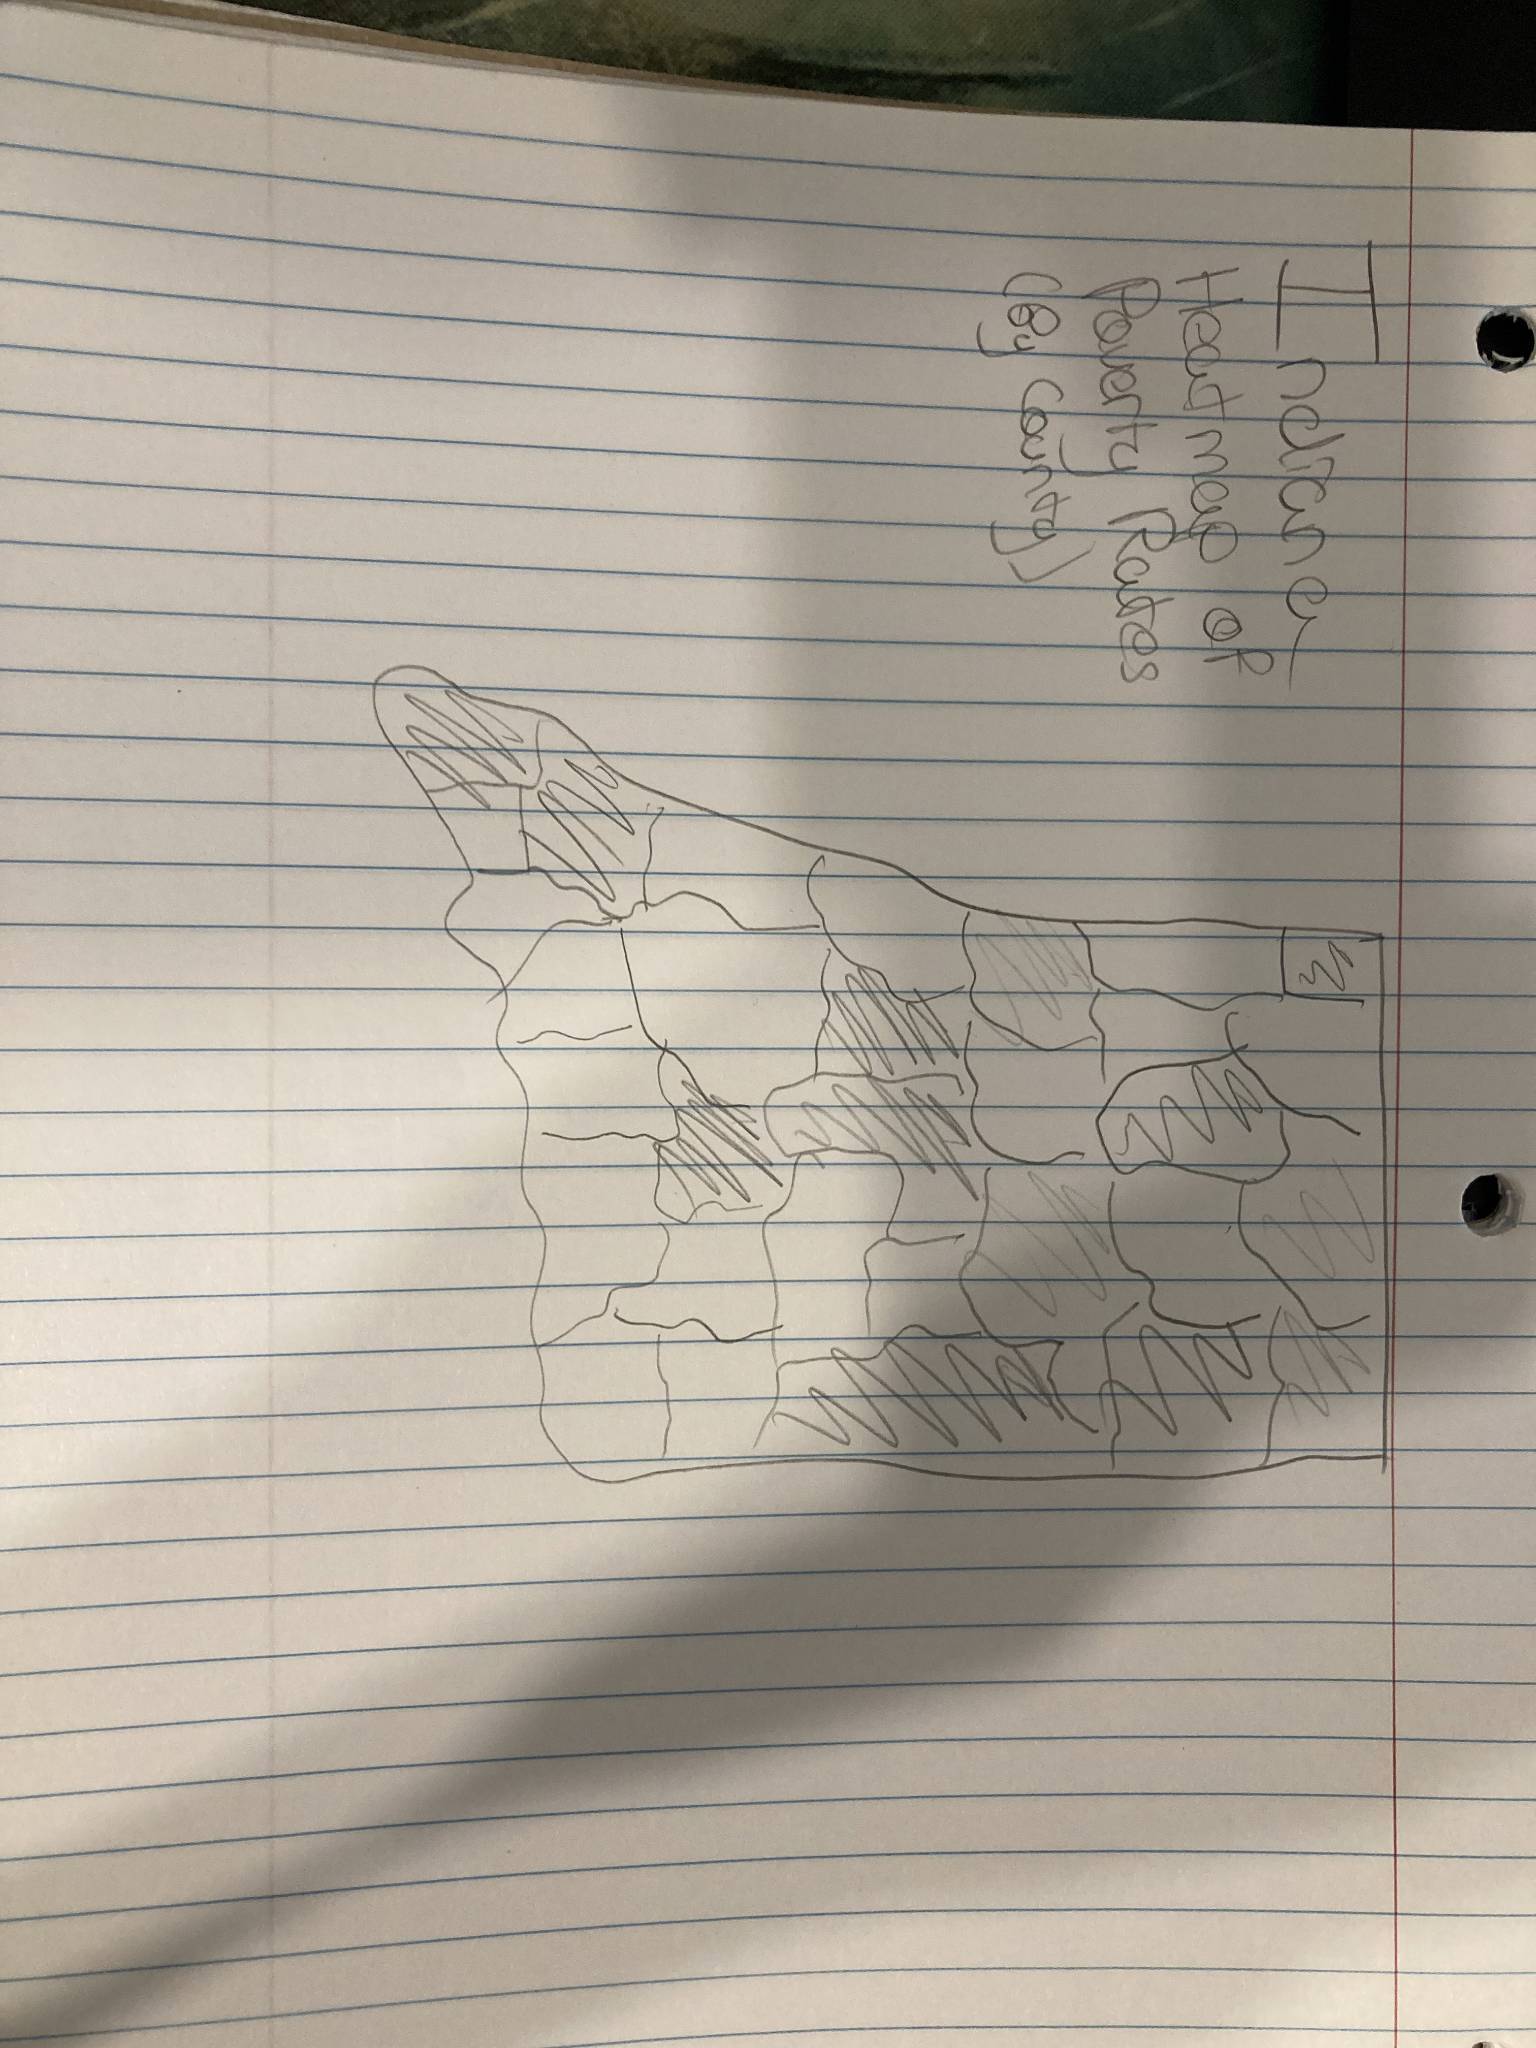 Indiana
Heat map of
Poverty Rates
(By County)